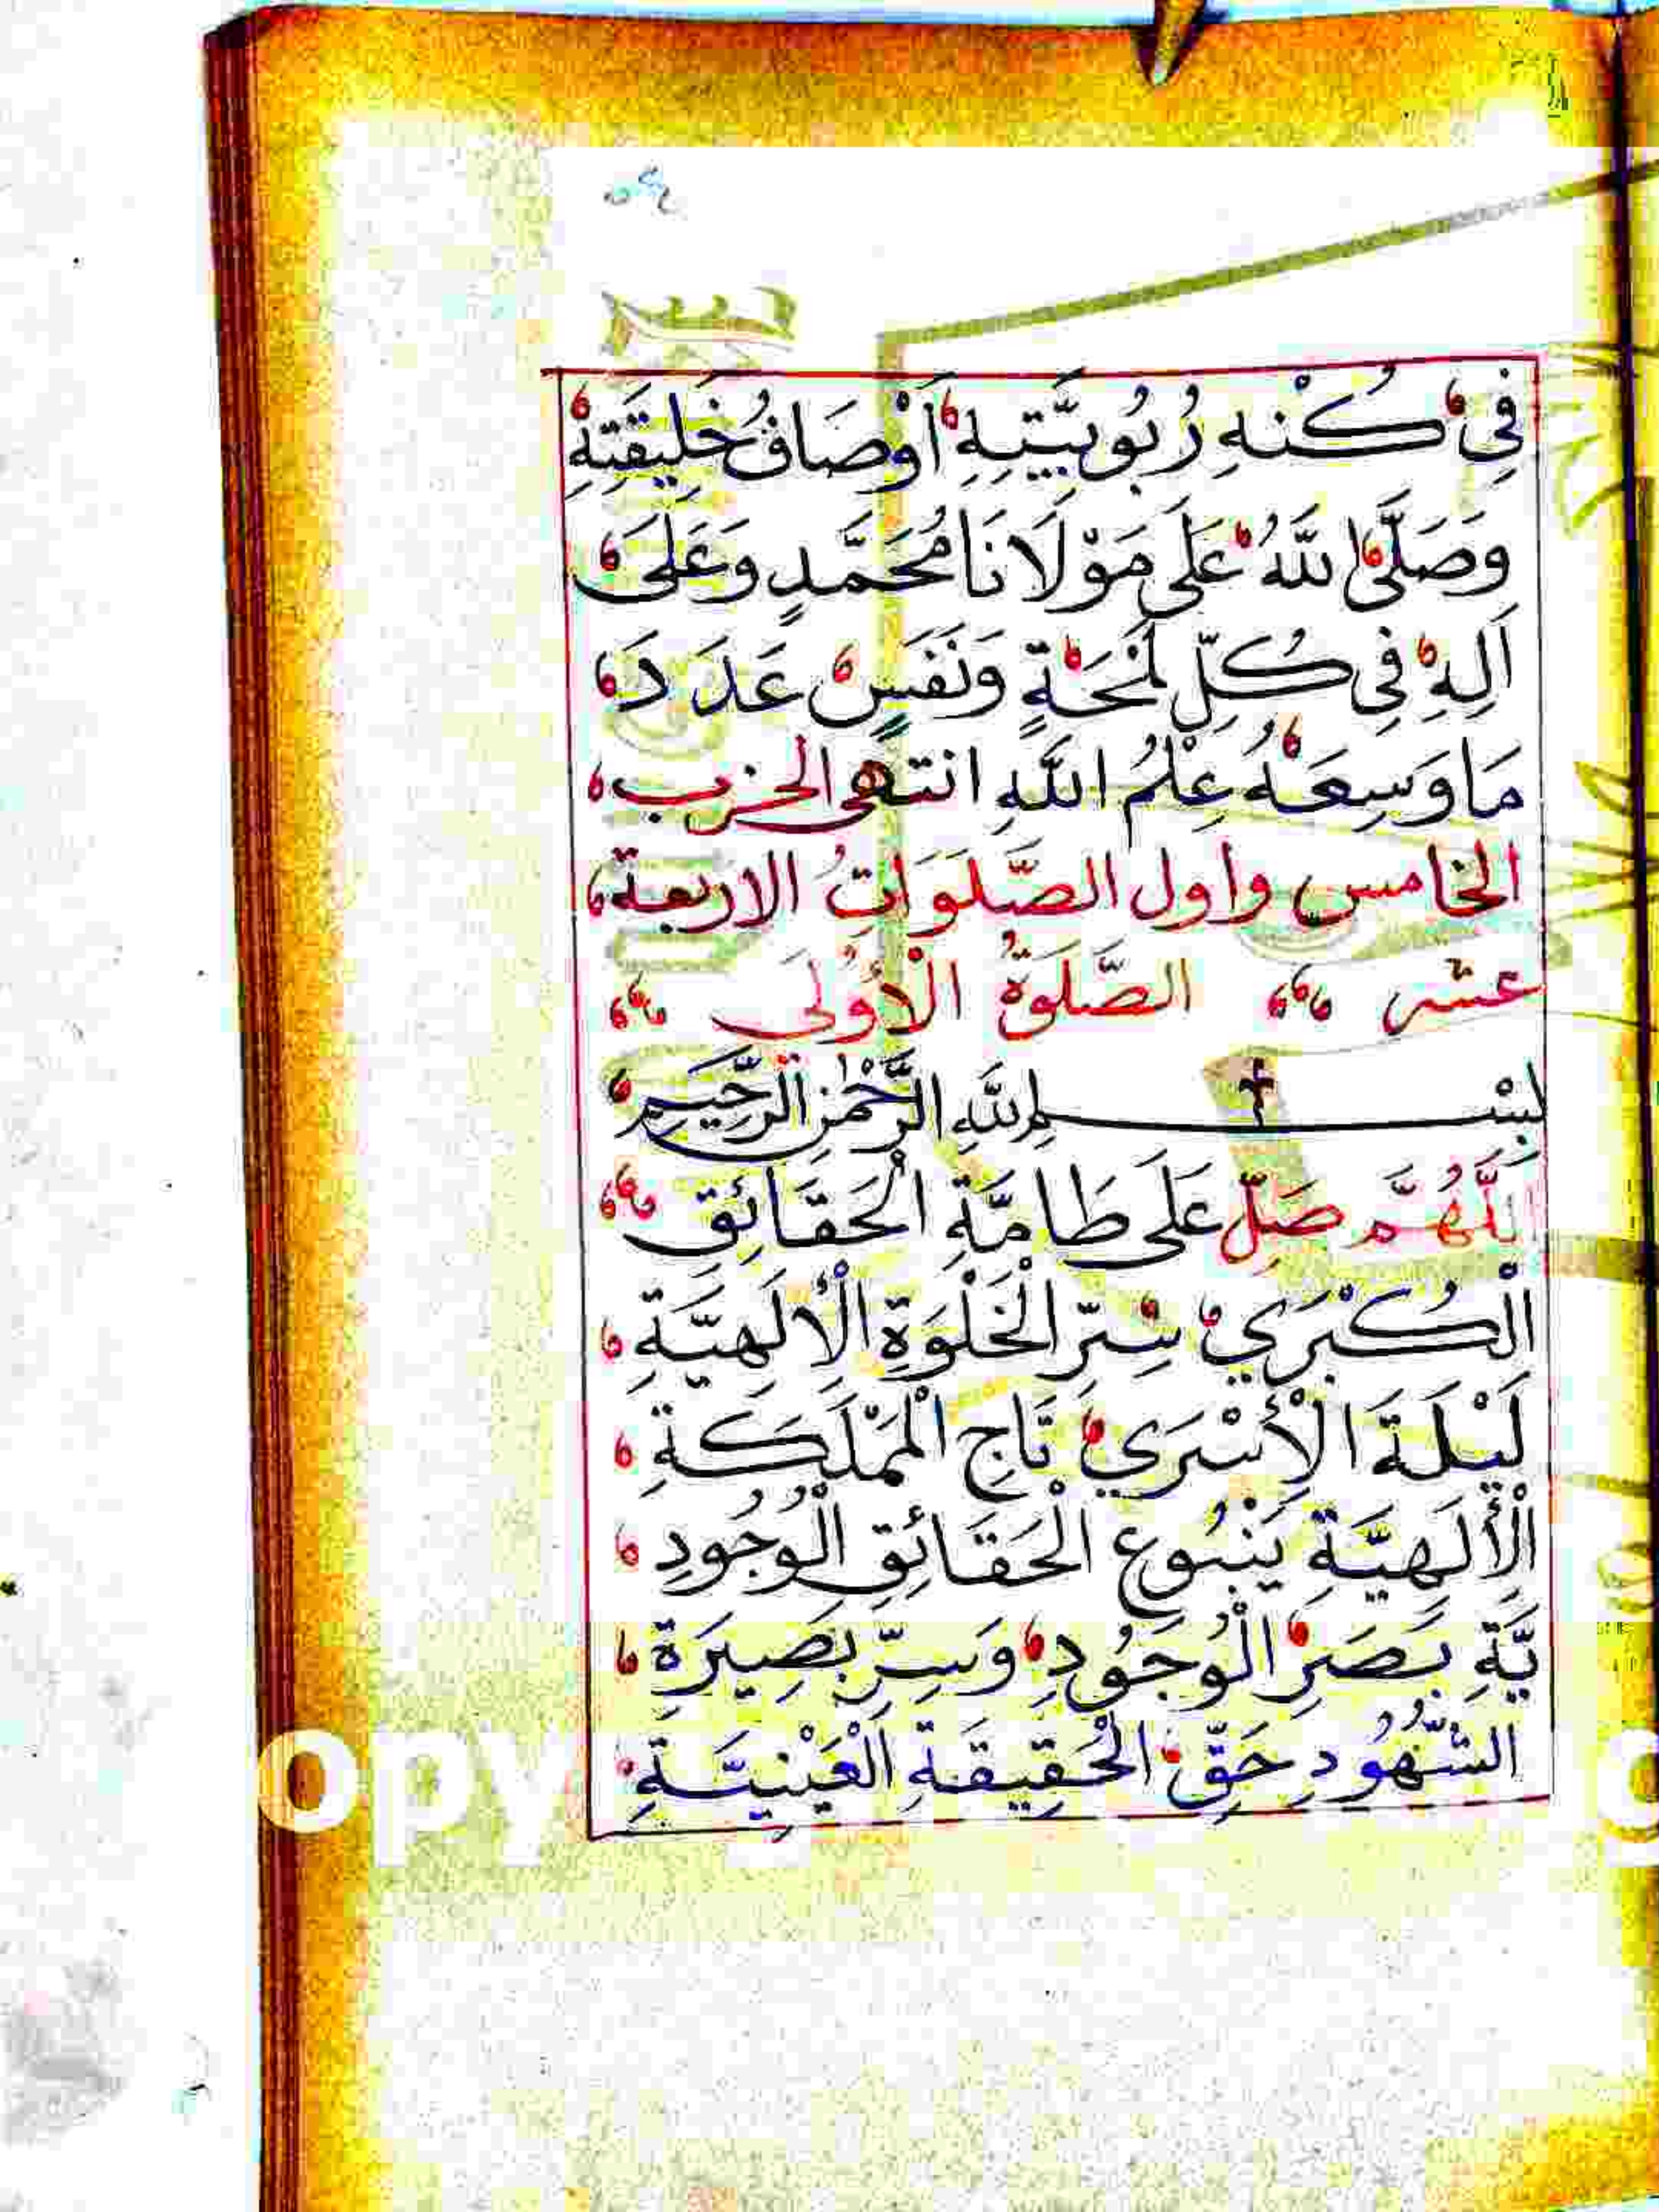 فِي كُنْهِ رُبُوبِيَّتِهِ أَوْصَافُ خَلِيقَتِهِ
وَصَلَّى اللَّهُ عَلَى مَوْلَانَا مُحَمَّدٍ وَعَلَى
آلِهِ فِي كُلِّ لَمْحَةٍ وَنَفَسٍ عَدَدَ
مَا وَسِعَهُ عِلْمُ اللَّهِ انتهى الحزب
الخامس واول الصَّلَوَاتُ الاربعة
عشر الصَّلَوةُ الْأُولَى
بِسْمِ اللَّهِ الرَّحْمَنِ الرَّحِيمِ
اللَّهُمَّ صَلِّ عَلَى طَامَّةِ الْحَقَائِقِ
الْكُبْرَي سِرِّ الْخَلْوَةِ الْإِلَهِيَّةِ
لَيْلَةَ الْإِسْرَي تَاجِ الْمَمْلَكَةِ
الْإِلَهِيَّةِ يَنْبُوعِ الْحَقَائِقِ الْوُجُودِ
يَّةِ بَصَرِ الْوُجُودِ وَسِرِّ بَصِيرَةِ
الشُّهُودِ حَقِّ الْحَقِيقَةِ الْعَيْنِيَّةِ
opy